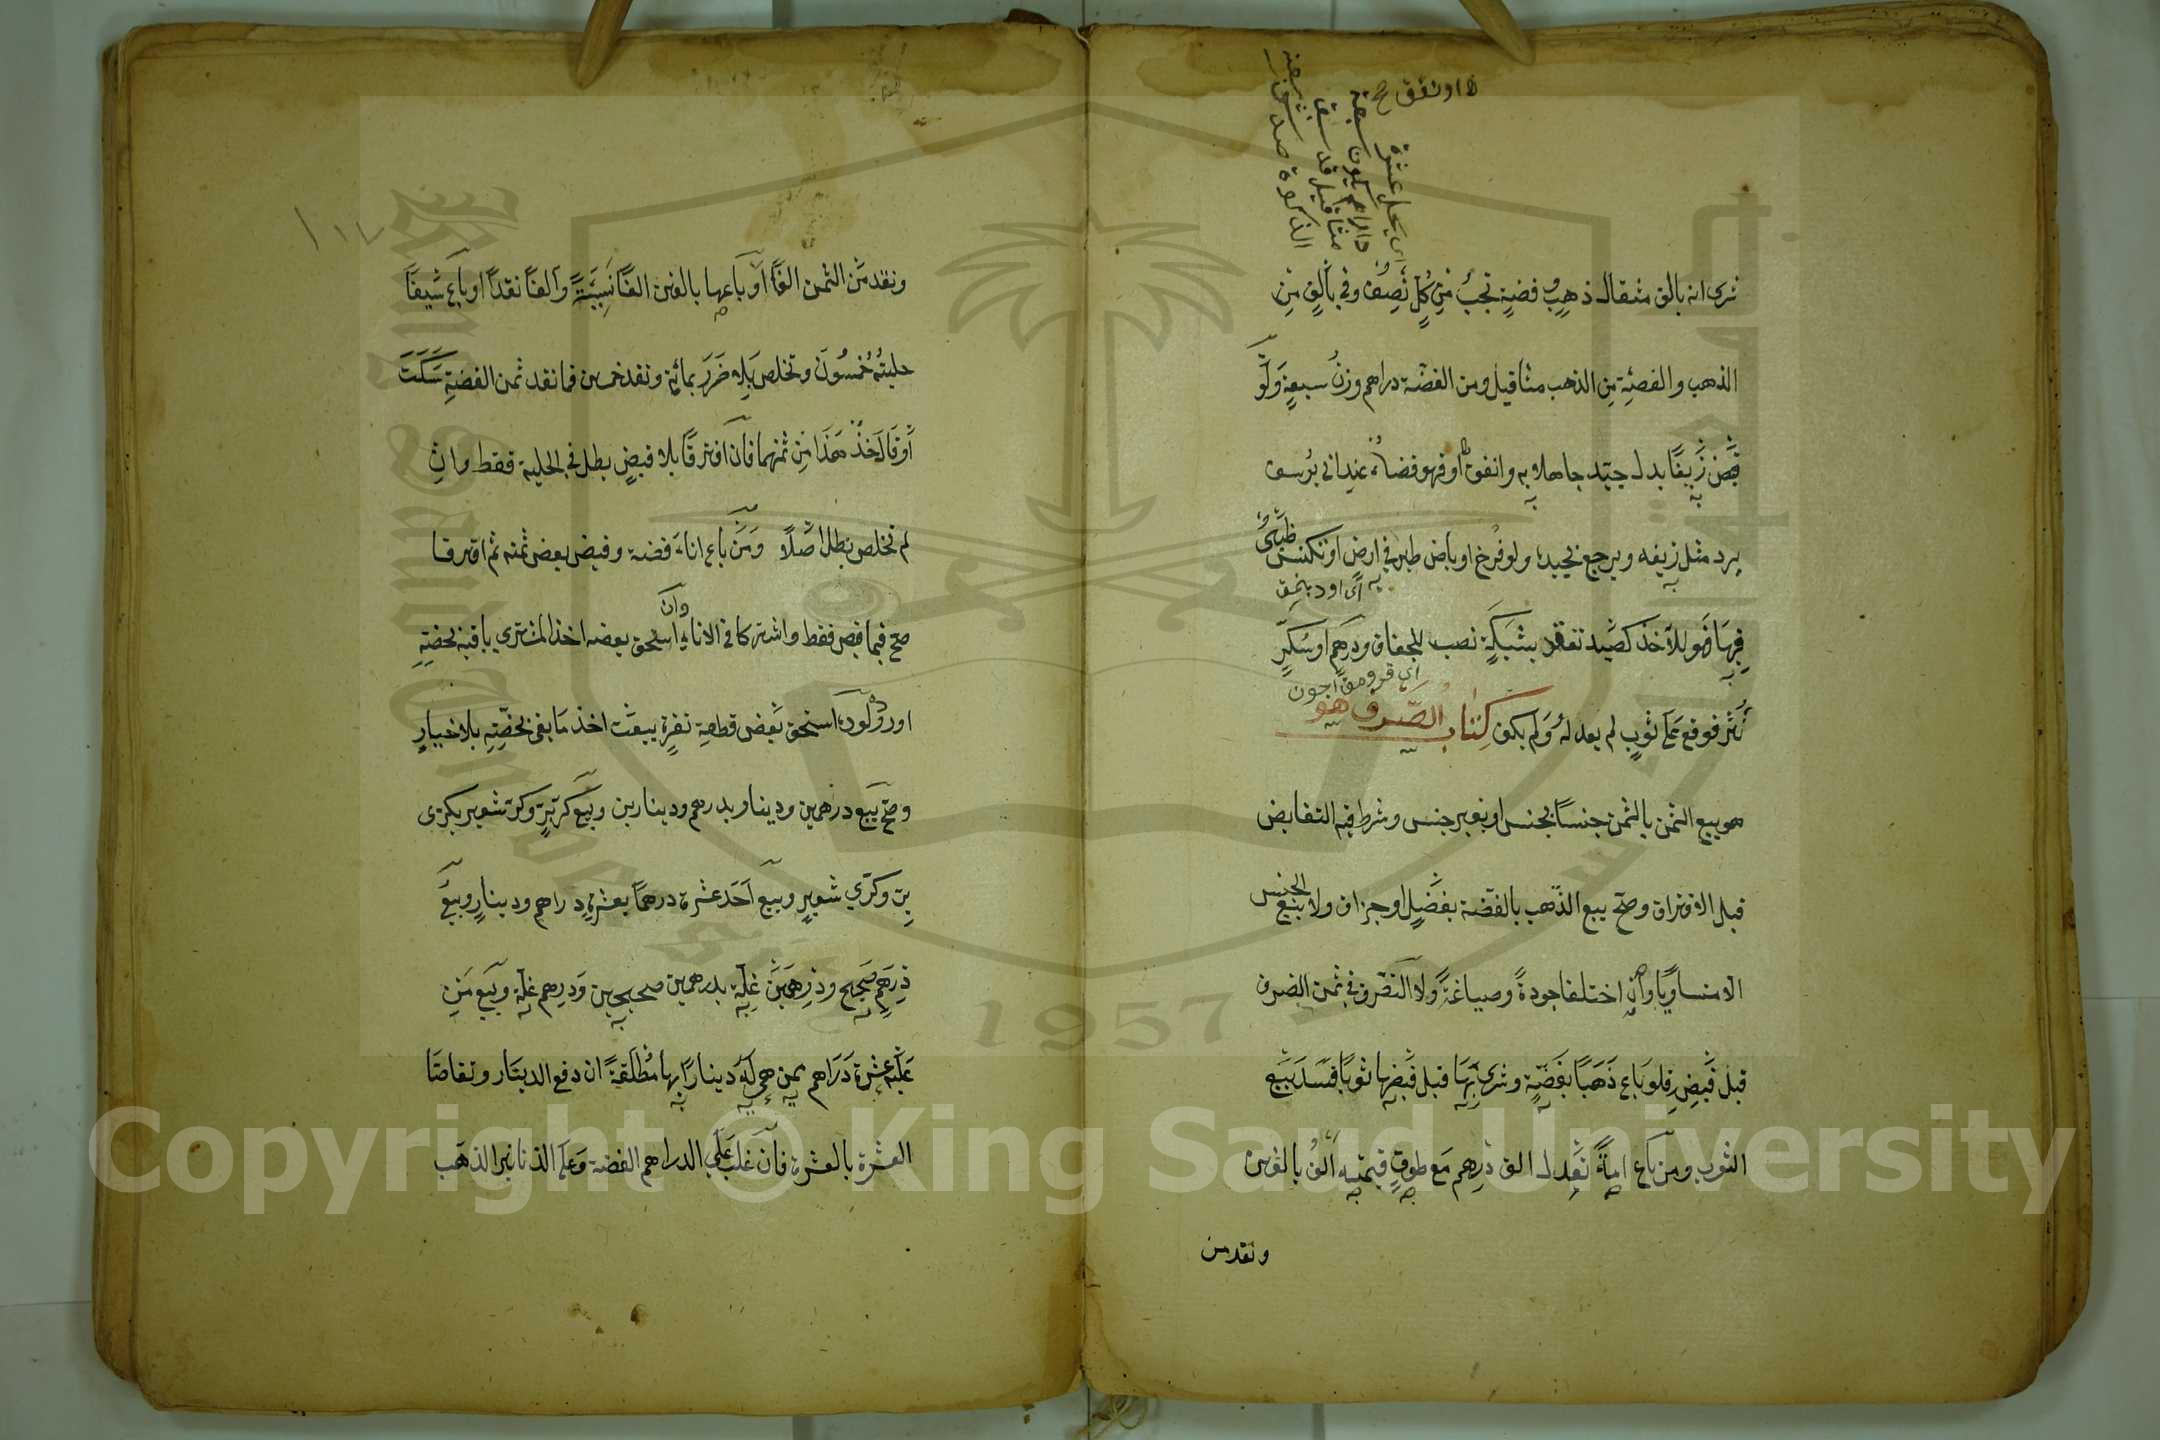 او نفق صح
شرى انه بالف مثقال ذهب و فضة تجب من كل نصف وفي بالف من
الذهب والفضة من الذهب مثاقيل ومن الفضة دراهم وزن سبعة ولو
قبض زيفا بدل جيد جاهلا به وانفق او فهو قضاء عند ابي يوسف
يرد مثل زيفه ويرجع بجيده ولو فرخ او باض طير في ارض او تكنس ظبي
فيها فهو للآخذ كصيد تعقد بشبكة نصب للجفاف ودرهم او سكر
نثر فوقع على ثوب لم يعد له ولم يكف كتاب الصرف هو
هو بيع الثمن بالثمن جنسا بجنس او بغير جنس وشرط فيه التقابض
قبل الافتراق وصح بيع الذهب بالفضة بفضل او جزاف ولا بيع الجنس
الا متساويا وان اختلفا جودة وصياغة ولا التصرف في ثمن الصرف
قبل قبضه فلو باع ذهبا بفضة وشرى بها قبل قبضها ثوبا فسد بيع
الثوب ومن باع امة تعدل الف درهم مع طوق قيمته الف بالفين
ونقد من
ونقد من الثمن الفا او باعها بالفين الفا نسيئة والفا نقدا او باع سيفا
حليته خمسون وتخلص بلا ضرر بمائة ونقد خمسين فما نقد ثمن الفضة سكت
او قال خذ هذا من ثمنهما فان افترقا بلا قبض بطل في الحلية فقط وان
لم تخلص بطل اصلا ومن باع اناء فضة وقبض بعض ثمنه ثم افترقا
صح فيما قبض فقط واشتركا في الاناء وان استحق بعضه اخذ المشتري باقيه بحصته
او رده ولو استحق بعض قطعة نقرة بيعت اخذ ما بقى بحصته بلا خيار
وصح بيع درهمين ودينار بدرهم ودينارين وبيع كر بر وكر شعير بكرى
بر وكري شعير وبيع احد عشر درهما بعشرة دراهم ودينار وبيع
درهم صحيح ودرهمين غلة بدرهمين صحيحين ودرهم غلة وبيع من
عليه عشرة دراهم ممن هي له دينارا بها مطلقة ان دفع الدينار وتقاصا
العشرة بالعشرة فان غلب على الدراهم الفضة وعلى الدنانير الذهب
Copyright © King Saud University
King Saud University
1957